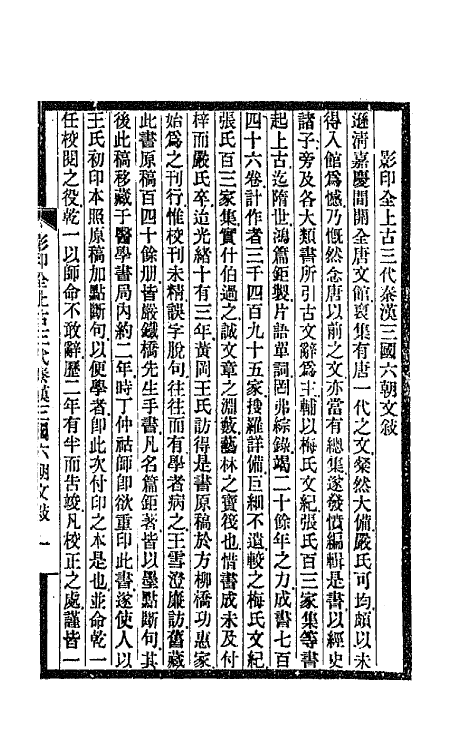 影印全上古三代秦漢三國六朝文敍
遜清嘉慶間開全唐文館裒集有唐一代之文粲然大備嚴氏可均頗以未
得入館爲憾乃慨然念唐以前之文亦當有總集遂發憤編輯是書以經史
諸子旁及各大類書所引古文辭爲主輔以梅氏文紀張氏百三家集等書
起上古迄隋世鴻篇鉅製片語單詞罔弗綜錄竭二十餘年之力成書七百
四十六卷計作者三千四百九十五家搜羅詳備巨細不遺較之梅氏文紀
張氏百三家集實什伯過之誠文章之淵藪藝林之寶筏也惜書成未及付
梓而嚴氏卒迨光緒十有三年黃岡王氏訪得是書原稿於方柳橋功惠家
始爲之刊行惟校刊未精誤字脫句往往而有學者病之王雪澄廉訪舊藏
此書原稿百四十餘册皆嚴鐵橋先生手書凡名篇鉅著皆以墨點斷句其
後此稿移藏于醫學書局內約二年時丁仲祜師卽欲重印此書遂使人以
王氏初印本照原稿加點斷句以便學者卽此次付印之本是也並命乾一
任校閱之役乾一以師命不敢辭歷二年有半而告竣凡校正之處謹皆一
影印全上古三代秦漢三國六朝文敍 一